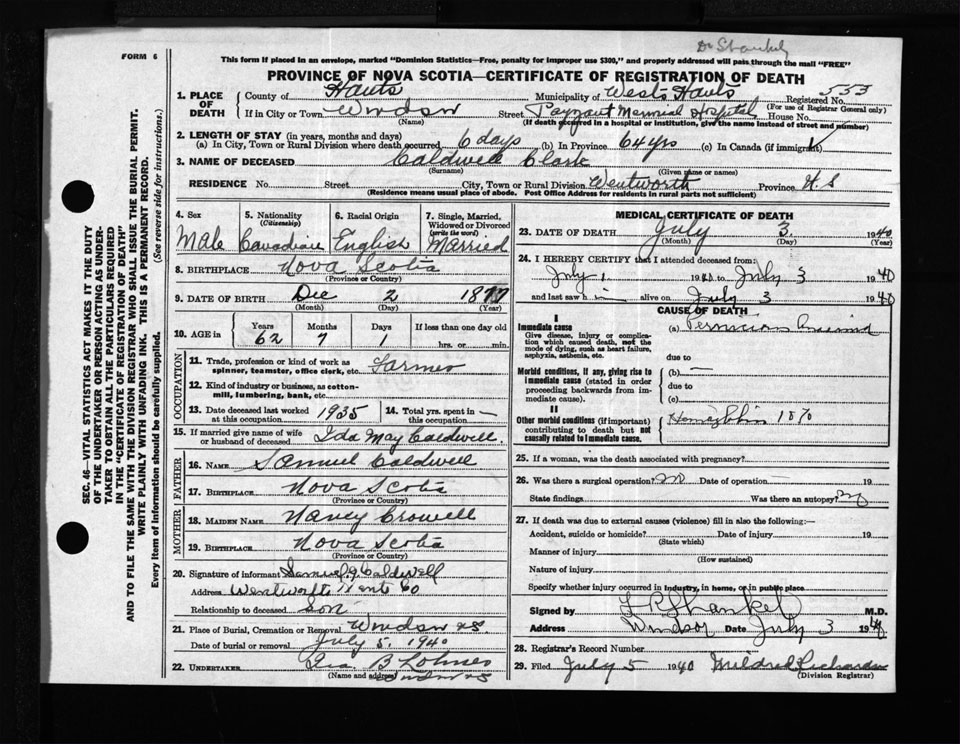 Dr Shankel
FORM 6
This form if placed in an envelope, marked "Dominion Statistics—Free, penalty for improper use $300," and properly addressed will pass through the mail "FREE"
PROVINCE OF NOVA SCOTIA—CERTIFICATE OF REGISTRATION OF DEATH
1. PLACE OF DEATH
County of Hants Municipality of West Hants Registered No. 533
(For use of Registrar General only)
If in City or Town Windsor Street Payzant Memorial Hospital House No.
(Name) (If death occurred in a hospital or institution, give the name instead of street and number)
2. LENGTH OF STAY (in years, months and days)
(a) In City, Town or Rural Division where death occurred 6 days (b) In Province 64 yrs (c) In Canada (if immigrant)
3. NAME OF DECEASED Caldwell Clark
(Surname) (Given name or names)
RESIDENCE No. Street City, Town or Rural Division Wentworth Province N.S
(Residence means usual place of abode. Post Office Address for residents in rural parts not sufficient)
4. Sex Male
5. Nationality (Citizenship) Canadian
6. Racial Origin English
7. Single, Married, Widowed or Divorced (write the word) Married
8. BIRTHPLACE Nova Scotia
(Province or Country)
9. DATE OF BIRTH Dec 2 1877
(Month) (Day) (Year)
10. AGE in Years 62 Months 7 Days 1 If less than one day old hrs. or min.
OCCUPATION
11. Trade, profession or kind of work as spinner, teamster, office clerk, etc. Farmer
12. Kind of industry or business, as cotton-mill, lumbering, bank, etc.
13. Date deceased last worked at this occupation 1935
14. Total yrs. spent in this occupation —
15. If married give name of wife or husband of deceased Ida May Caldwell
FATHER
16. NAME Samuel Caldwell
17. BIRTHPLACE Nova Scotia
(Province or Country)
MOTHER
18. MAIDEN NAME Nancy Crowell
19. BIRTHPLACE Nova Scotia
(Province or Country)
20. Signature of informant Samuel J Caldwell
Address Wentworth Hants Co
Relationship to deceased Son
21. Place of Burial, Cremation or Removal Windsor N.S.
Date of burial or removal July 5, 1940
22. UNDERTAKER Geo. B Lohnes
(Name and address) Windsor NS
MEDICAL CERTIFICATE OF DEATH
23. DATE OF DEATH July 3 1940
(Month) (Day) (Year)
24. I HEREBY CERTIFY that I attended deceased from:
July 1 1940 to July 3 1940
and last saw h im alive on July 3 1940
CAUSE OF DEATH
I
Immediate cause
Give disease, injury or complication which caused death, not the mode of dying, such as heart failure, asphyxia, asthenia, etc.
(a) Pernicious Anaemia
due to
Morbid conditions, if any, giving rise to immediate cause (stated in order proceeding backwards from immediate cause).
(b) —
due to
(c)
II
Other morbid conditions (if important) contributing to death but not causally related to immediate cause.
Hemoglobin 18%
25. If a woman, was the death associated with pregnancy?
26. Was there a surgical operation? no Date of operation — 19
State findings Was there an autopsy? no
27. If death was due to external causes (violence) fill in also the following:—
Accident, suicide or homicide? Date of injury 19
(State which)
Manner of injury
(How sustained)
Nature of injury
Specify whether injury occurred in industry, in home, or in public place
Signed by Shankel M.D.
Address Windsor Date July 3 1940
28. Registrar's Record Number
29. Filed July 5 1940 Mildred Richards
(Division Registrar)
SEC. 46—VITAL STATISTICS ACT MAKES IT THE DUTY
OF THE UNDERTAKER OR PERSON ACTING AS UNDER-
TAKER TO OBTAIN ALL THE PARTICULARS REQUIRED
IN THE "CERTIFICATE OF REGISTRATION OF DEATH"
AND TO FILE THE SAME WITH THE DIVISION REGISTRAR WHO SHALL ISSUE THE BURIAL PERMIT.
WRITE PLAINLY WITH UNFADING INK. THIS IS A PERMANENT RECORD.
Every item of Information should be carefully supplied. (See reverse side for instructions.)